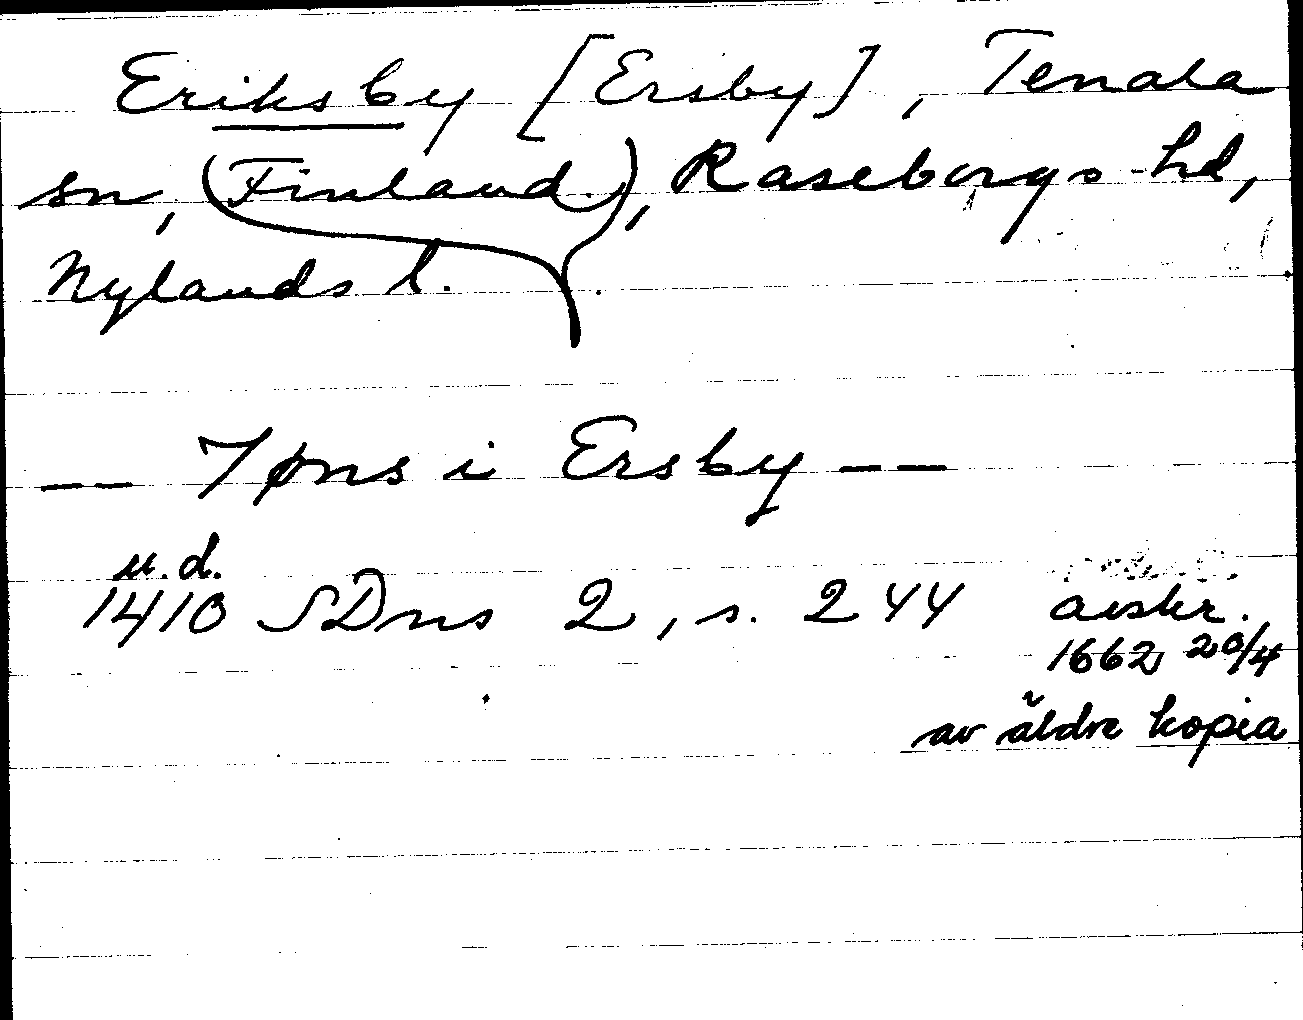 Eriksby [Ersby], Tenala
sn, (Finland), Raseborgs hd,
Nylands l.
-- Jøns i Ersby --
u.d.
1410 SDns 2, s. 244 avskr.
1662 20/4
av äldre kopia